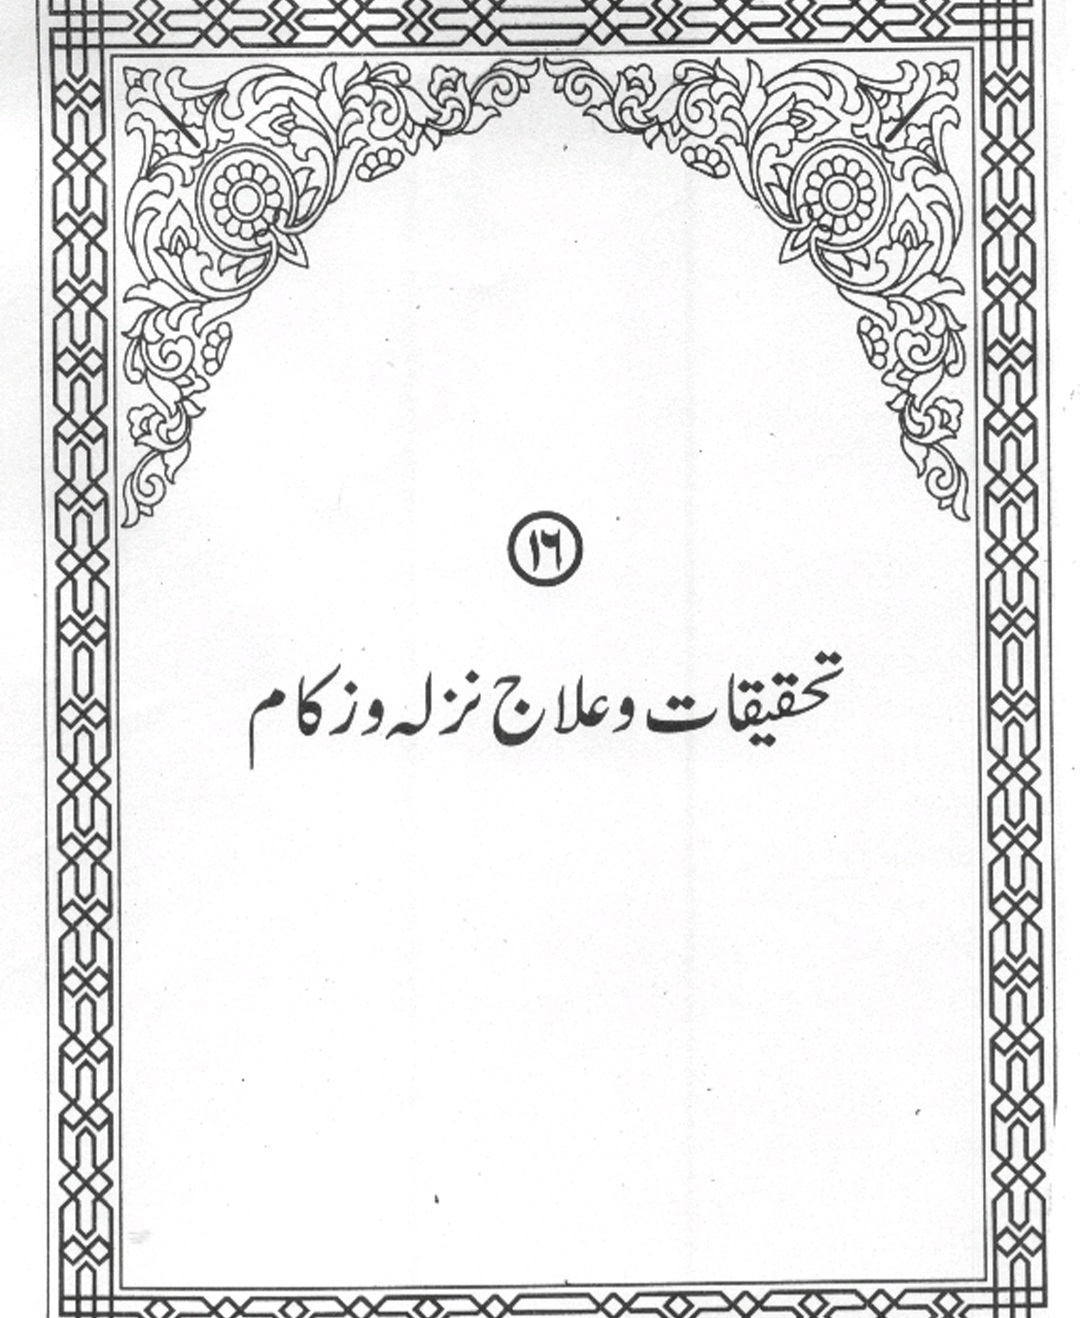 ۱۶
تحقیقات و علاج نزلہ و زکام